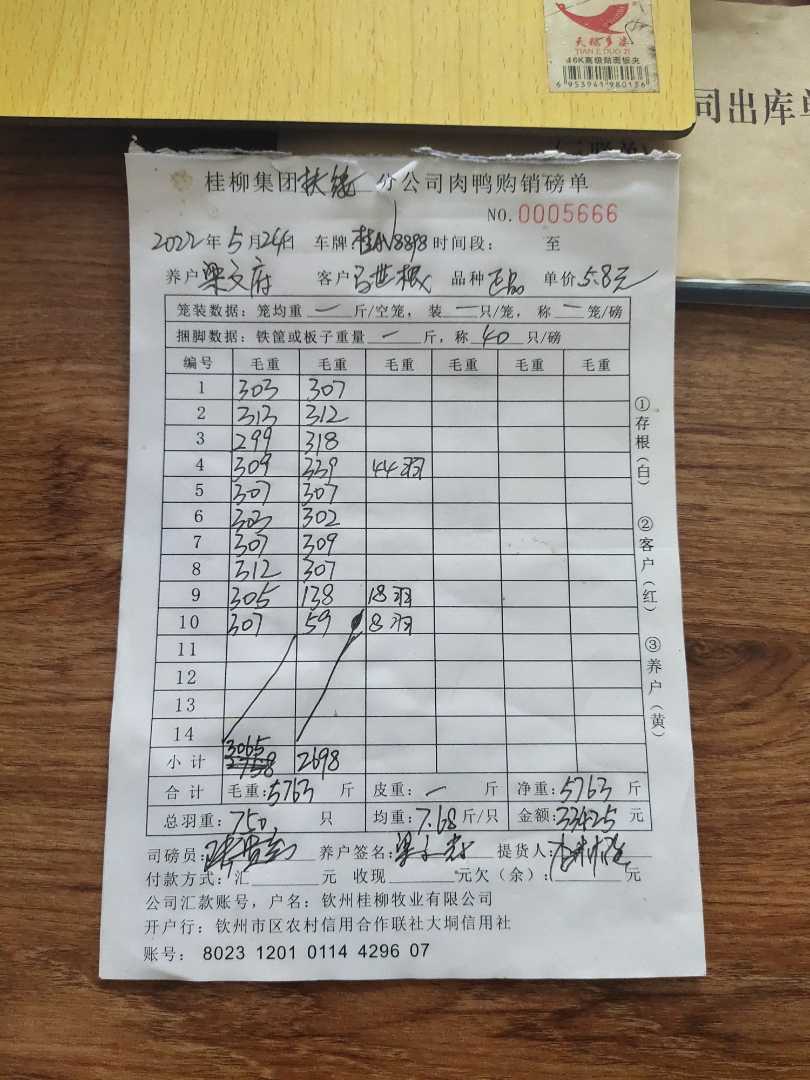 天鹅多姿
TIAN E DUO ZI
46K高级贴面板夹
6 953941 980136
司出库单
桂柳集团扶绥分公司肉鸭购销磅单
NO. 0005666
2022年5月24日 车牌桂AV8898时间段: 至
养户梁文府 客户马世概 品种正品 单价5.8元
笼装数据: 笼均重 一 斤/空笼, 装 一 只/笼, 称 一 笼/磅
捆脚数据: 铁筐或板子重量 一 斤, 称 40 只/磅
编号 毛重 毛重 毛重 毛重 毛重 毛重
1 303 307
2 313 312
3 299 318
4 309 339 44羽
5 307 307
6 303 302
7 307 309
8 312 307
9 305 138 18羽
10 307 59 8羽
11
12
13
14
小计 3065 2758 2698
合计 毛重:5763 斤 皮重: 一 斤 净重:5763 斤
总羽重:750 只 均重:7.68斤/只 金额:33425 元
司磅员: 养户签名: 提货人:
付款方式: 汇 元 收现 元欠(余): 元
公司汇款账号, 户名: 钦州桂柳牧业有限公司
开户行: 钦州市区农村信用合作联社大垌信用社
账号: 8023 1201 0114 4296 07
①存根(白)
②客户(红)
③养户(黄)